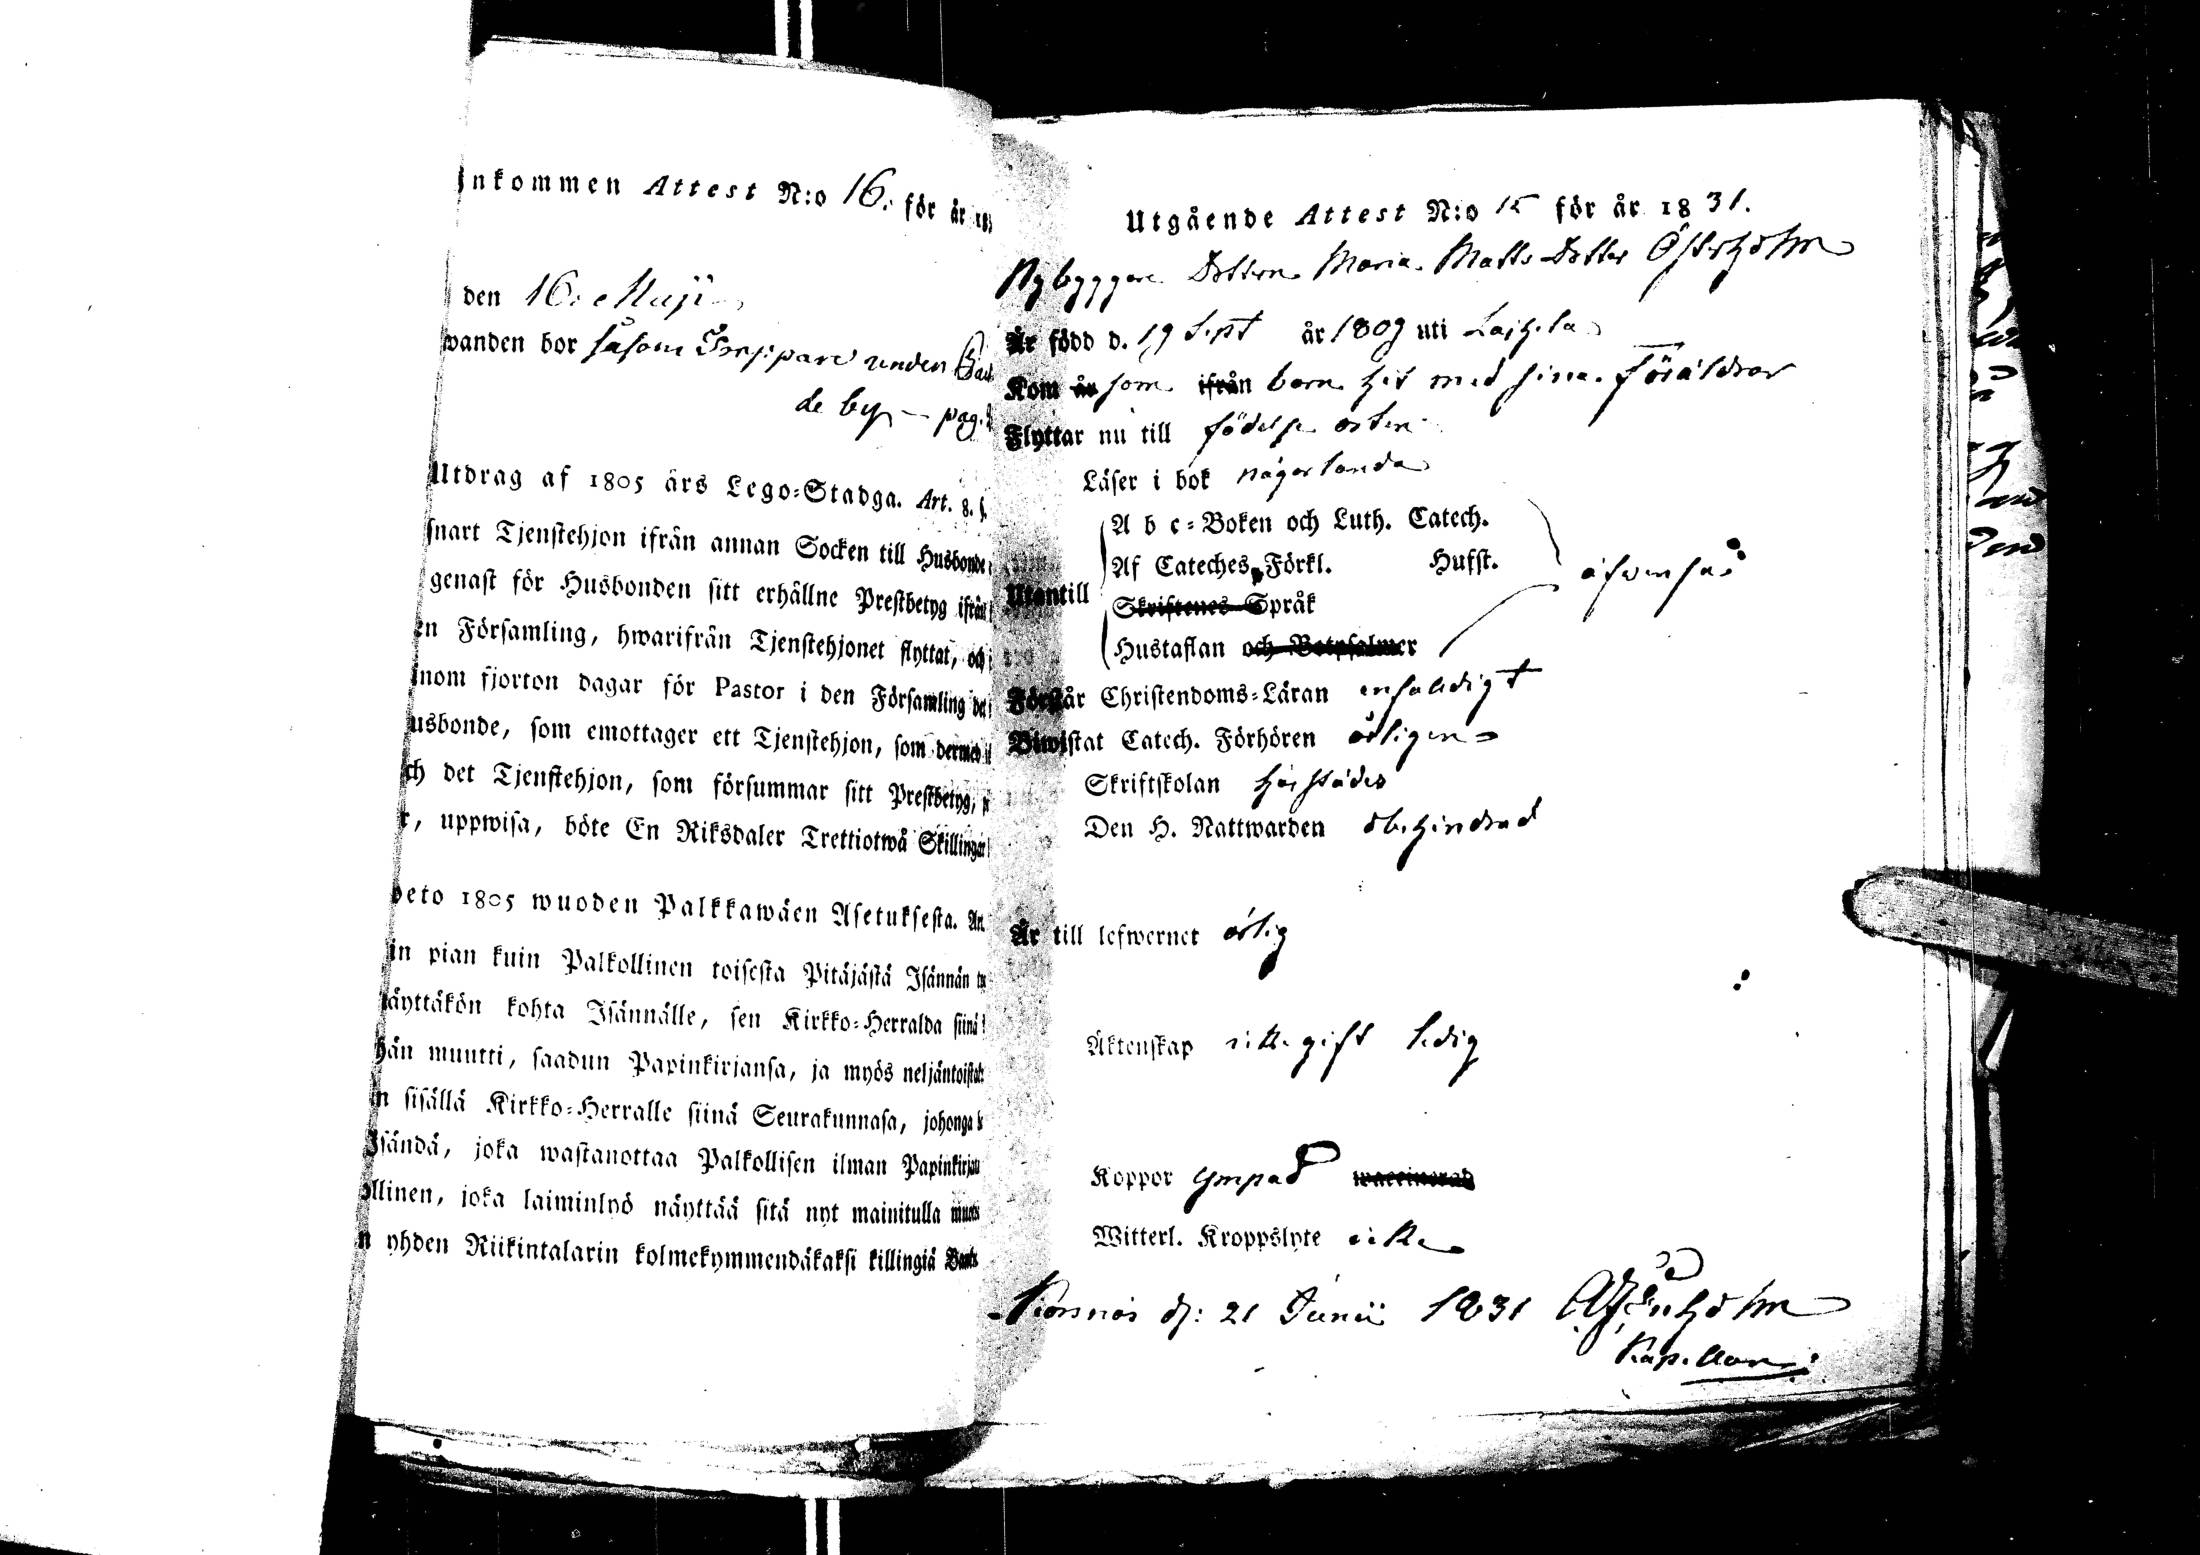 Inkommen Attest N:o 16. för år 18
den 16. Maji
wanden bor såsom Torppare under
de by — pag.
Utdrag af 1805 års Lego-Stadga. Art. 8. §.
snart Tjenstehjon ifrån annan Socken till Husbonde
genast för Husbonden sitt erhållne Prestbetyg ifrån
en Församling, hwarifrån Tjenstehjonet flyttat, och
inom fjorton dagar för Pastor i den Församling
usbonde, som emottager ett Tjenstehjon, som dermed
ch det Tjenstehjon, som försummar sitt Prestbetyg,
r, uppwisa, böte En Riksdaler Trettiotwå Skillingar
peto 1805 wuoden Palkkawäen Asetuksesta. Art.
in pian kuin Palkollinen toisesta Pitäjästä Isännän
näyttäkön kohta Isännälle, sen Kirkko-Herralda siinä
hän muutti, saadun Papinkirjansa, ja myös neljäntoista
n sisällä Kirkko-Herralle siinä Seurakunnasa, johonga
Isändä, joka wastanottaa Palkollisen ilman Papinkirja
ollinen, joka laiminlyö näyttää sitä nyt mainitulla
n yhden Riikintalarin kolmekymmendäkaksi killingiä
Utgående Attest N:o 15 för år 1831.
Nybyggare Dottern Maria Matts Dotter Österholm
Är född d. 19 Sept år 1809 uti Lajhela
Kom år som ifrån barn hit med sina föräldrar
Flyttar nu till födelse orten
Läser i bok någorlunda
A b c-Boken och Luth. Catech.
Af Cateches. Förkl. Hufst.
Utantill
äfvenså
Skriftenes Språk
Hustaflan och Botpsalmer
Förstår Christendoms-Läran enfaldigt
Biwistat Catech. Förhören årligen
Skriftskolan härstädes
Den H. Nattwarden obehindrad
Är till lefwernet ärlig
Äktenskap icke gift ledig
Koppor ympad waccinerad
Witterl. Kroppslyte icke
d: 21 Junii 1831
Kapellan